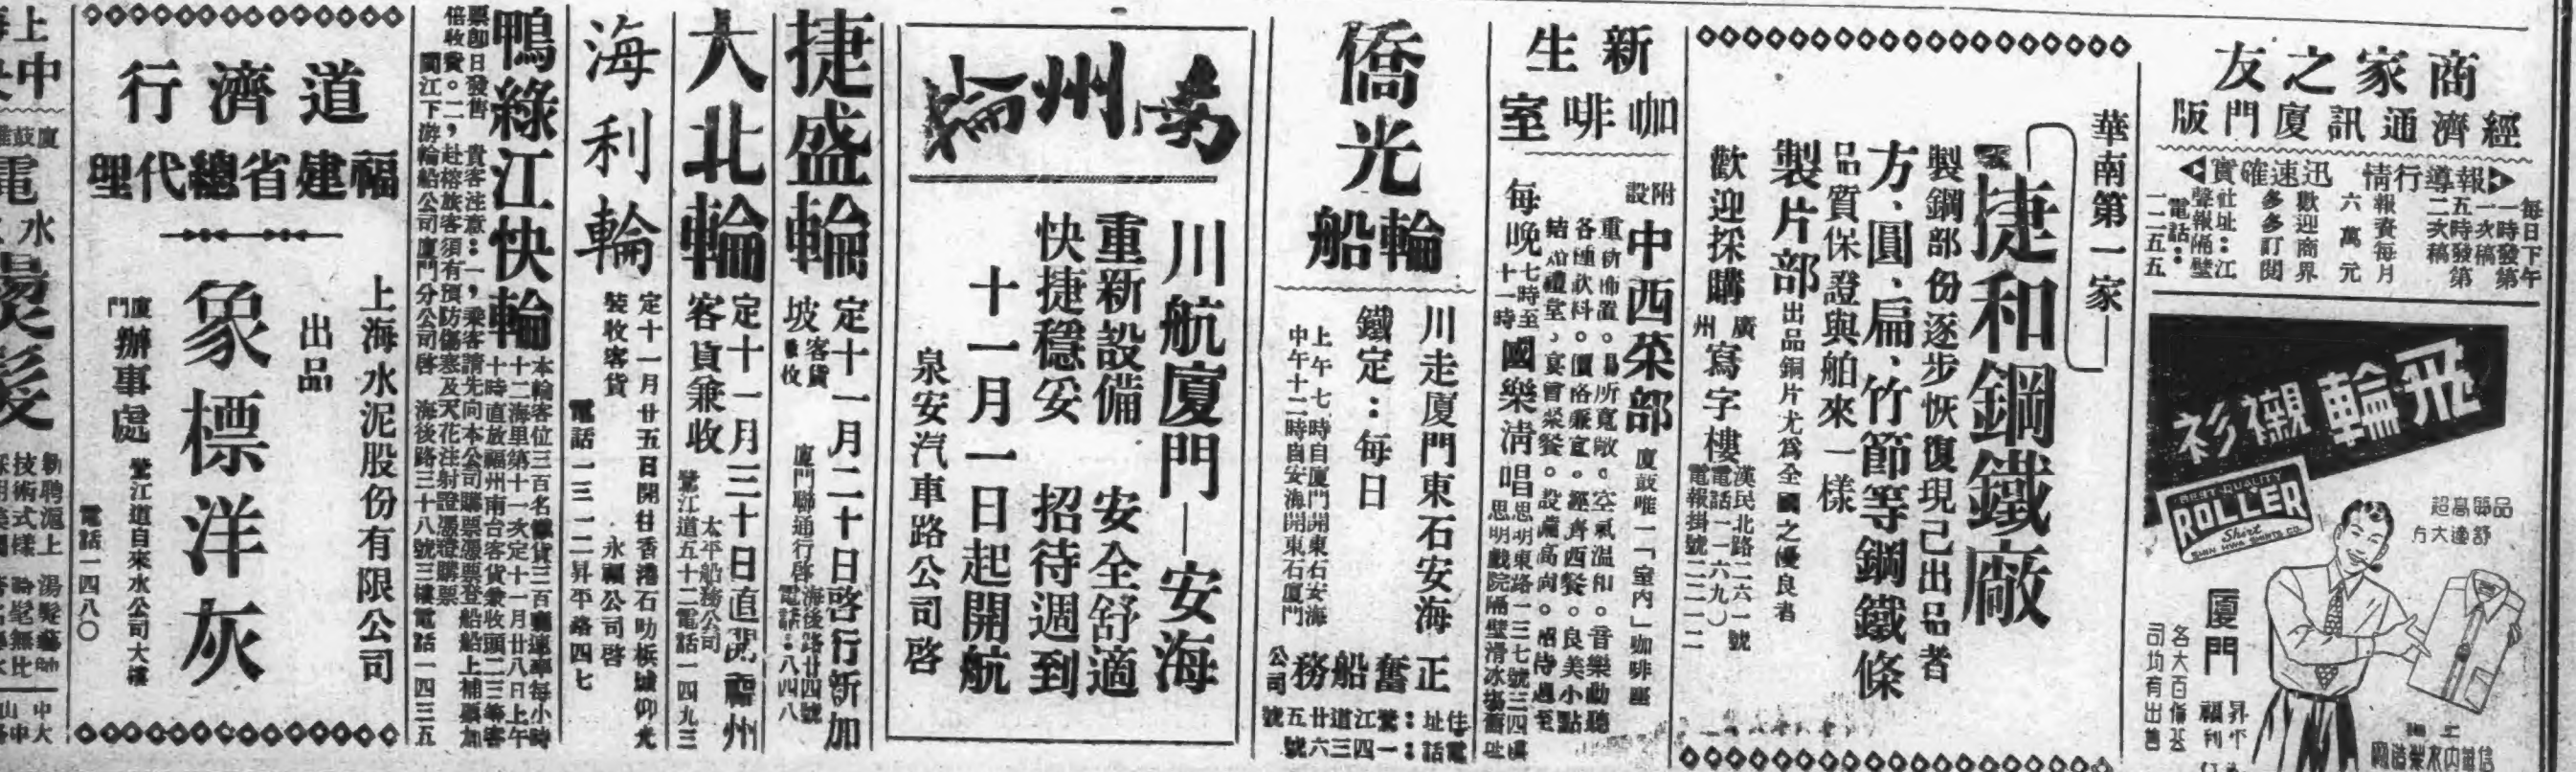 商家之友
經濟通訊廈門版
報導行情 迅速確實
每日下午
一時發第
一次稿
五時發第
二次稿
報費每月
六萬元
歡迎商界
多多訂閱
社址：江
聲報隔壁
電話：
一二五五
飛輪襯衫
BEST QUALITY
ROLLER
Shirt
超高品質
舒適大方
廈門
各大百貨公
司均有出售
華南第一家
捷和鋼鐵廠
製鋼部份逐步恢復現已出品者
方、圓、扁、竹節等鋼鐵條
品質保證與舶來一樣
製片部出品鋼片尤為全國之優良者
歡迎採購
廣州寫字樓
漢民北路二六一號
電話一一六九〇
電報掛號二二一二
新生
咖啡室
附設中西菜部
廈鼓唯一「室內」咖啡座
重新佈置。場所寬敞。空氣溫和。音樂動聽
各種飲料。價格廉宜。經濟西餐。良美小點
結婚禮堂，宴會聚餐。設備高尚。招待週至
每晚七時至十一時國樂清唱
思明東路一三七號三四樓
思明戲院隔壁滑冰場舊址
僑光輪船
川走廈門東石安海
鐵定：每日
上午七時自廈門開東石安海
中午十二時自安海開東石廈門
正奮船務公司
住址：鷺江道廿五號
電話：一四三六號
川航廈門—安海
重新設備 安全舒適
快捷穩妥 招待週到
十一月一日起開航
泉安汽車路公司啓
捷盛輪
定十一月二十日啓行新加
坡 客貨兼收
廈門聯通行啓
海後路廿四號
電話：八四八
大北輪
定十一月三十日直開福州
客貨兼收
太平船務公司
鷺江道五十二電話一四九三
海利輪
定十一月廿五日開往香港石叻檳城仰光
裝收客貨
永福公司啓
電話一三一二昇平路四七
鴨綠江快輪
本輪客位三百名載貨三百噸速率每小時
十二海里第十一次定十一月廿八日上午
十時直放福州南台客貨兼收頭二三等客
票即日發售 貴客注意：一，乘客請先向本公司購票憑票登船船上補票加
倍收費。二，赴榕旅客須有預防傷寒及天花注射證憑證購票
閩江下游輪船公司廈門分公司啓 海後路三十八號三樓電話一四三五
道濟行
福建省總代理
上海水泥股份有限公司
出品
象標洋灰
廈門辦事處
鷺江道自來水公司大樓
電話一四八〇